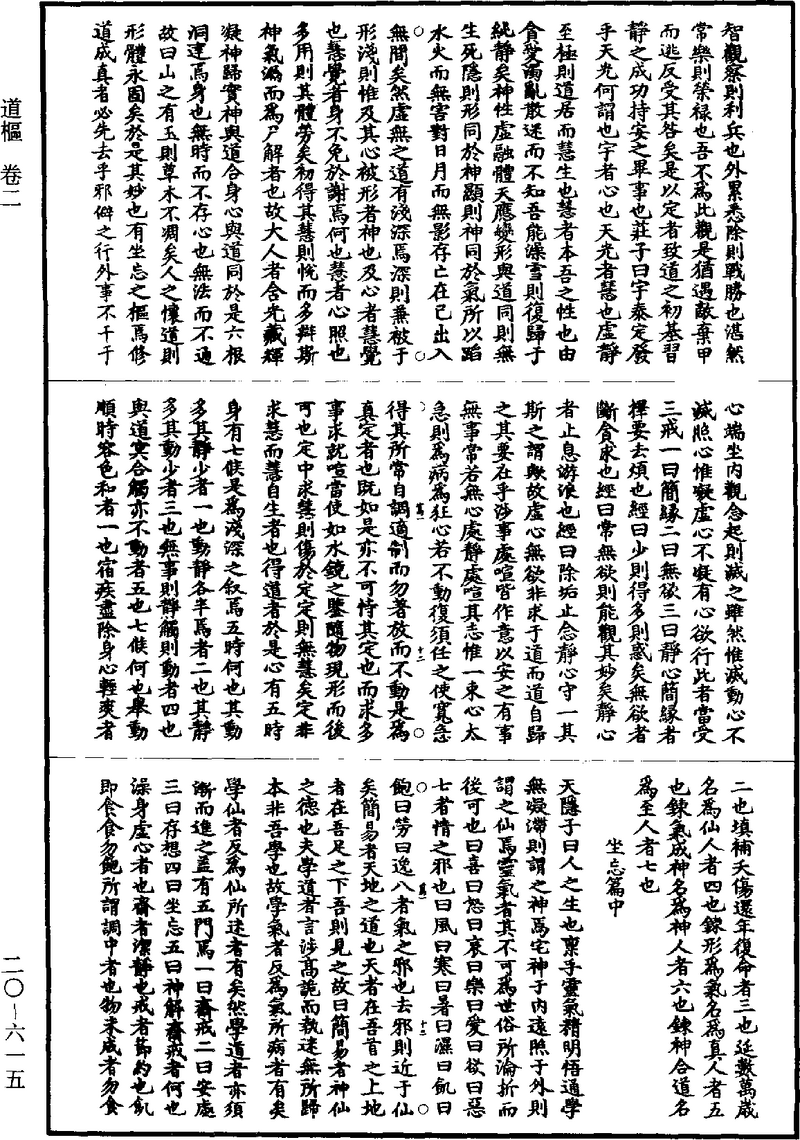 道樞　卷二
二〇－六一五
智觀察則利兵也外累悉除則戰勝也湛然
常樂則榮祿也吾不為此觀是猶遇敵棄甲
而逃反受其咎矣是以定者致道之初基習
靜之成功持安之畢事也莊子曰宇泰定發
乎天光何謂也宇者心也天光者慧也虛靜
至極則道居而慧生也慧者本吾之性也由
貪愛濁亂散迷而不知吾能澡雪則復歸于
純靜矣神性虛融體天應變形與道同則無
生死隱則形同於神顯則神同於氣所以蹈
水火而無害對日月而無影存亡在己出入
無間矣然虛無之道有淺深焉深則兼被于
形淺則惟及其心被形者神也及心者慧覺
也慧覺者身不免於謝焉何也慧者心照也
多用則其體勞矣初得其慧則悅而多辯斯
神氣漏而為尸解者也故大人者含光藏輝
凝神歸實神與道合身心與道同於是六根
洞達焉身也無時而不存心也無法而不通
故曰山之有玉則草木不凋矣人之懷道則
形體永固矣於是其妙也有坐忘之樞焉修
道成真者必先去乎邪僻之行外事不干于
心端坐內觀念起則滅之雖然惟滅動心不
滅照心惟凝虛心不凝有心欲行此者當受
三戒一曰簡緣二曰無欲三曰靜心簡緣者
擇要去煩也經曰少則得多則惑矣無欲者
斷貪求也經曰常無欲則能觀其妙矣靜心
者止息游浪也經曰除垢止念靜心守一其
斯之謂歟故虛心無欲非求于道而道自歸
之其要在乎涉事處喧皆作意以安之有事
無事常若無心處靜處喧其志惟一束心太
急則為病為狂心若不動復須任之使寬急
得其所常自調適制而勿著放而不動是為
真定者也既如是亦不可恃其定也而求多
事求就喧當使如水鏡之鑒隨物現形而後
可也定中求慧則傷於定定則無慧矣定非
求慧而慧自生者也得道者於是心有五時
身有七候是為淺深之叙焉五時何也其動
多其靜少者一也動靜各半焉者二也其靜
多其動少者三也無事則靜觸則動者四也
與道冥合觸亦不動者五也七候何也舉動
順時容色和者一也宿疾盡除身心輕爽者
二也填補夭傷還年復命者三也延數萬歲
名為仙人者四也鍊形為氣名為真人者五
也鍊氣成神名為神人者六也鍊神合道名
為至人者七也
坐忘篇中
天隱子曰人之生也稟乎靈氣精明悟通學
無凝滯則謂之神焉宅神于內遠照于外則
謂之仙焉靈氣者其不可為世俗所淪折而
後可也曰喜曰怒曰哀曰樂曰愛曰欲曰惡
七者情之邪也曰風曰寒曰暑曰濕曰飢曰
飽曰勞曰逸八者氣之邪也去邪則近于仙
矣簡易者天地之道也天者在吾首之上地
者在吾足之下吾則見之故曰簡易者神仙
之德也夫學道者言涉高詭而執迷無所歸
本非吾學也故學氣者反為氣所病者有矣
學仙者反為仙所迷者有矣然學道者亦須
漸而進之蓋有五門焉一曰齋戒二曰安處
三曰存想四曰坐忘五曰神解齋戒者何也
澡身虛心者也齋者潔靜也戒者節約也飢
即食食勿飽所謂調中者也物未成者勿食